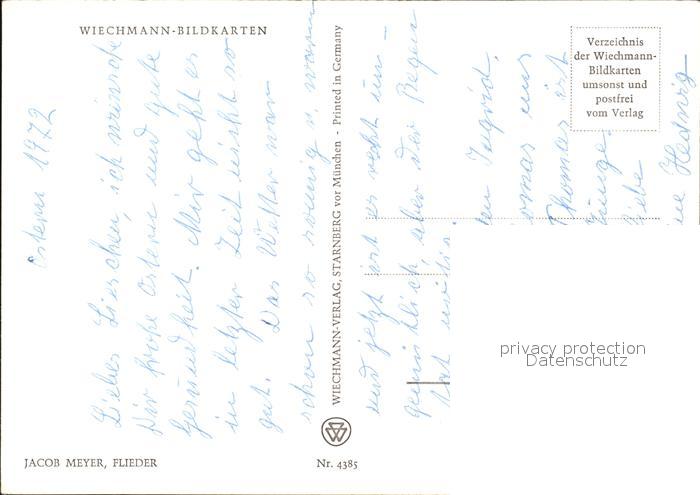 WIECHMANN-BILDKARTEN
Ostern 1972
Liebes Lieschen, ich wünsche
Dir frohe Ostern und gute
Gesundheit. Mir geht es
in letzter Zeit nicht so
gut. Das Wetter war
schon so sonnig u. warm
und jetzt ist es recht un-
gemütlich, aber der Regen
ist
Ingrid,
uns
Thomas ist
Junge.
Liebe
Hedwig
WIECHMANN-VERLAG, STARNBERG vor München - Printed in Germany
Verzeichnis
der Wiechmann-
Bildkarten
umsonst und
postfrei
vom Verlag
privacy protection
Datenschutz
JACOB MEYER, FLIEDER
Nr. 4385